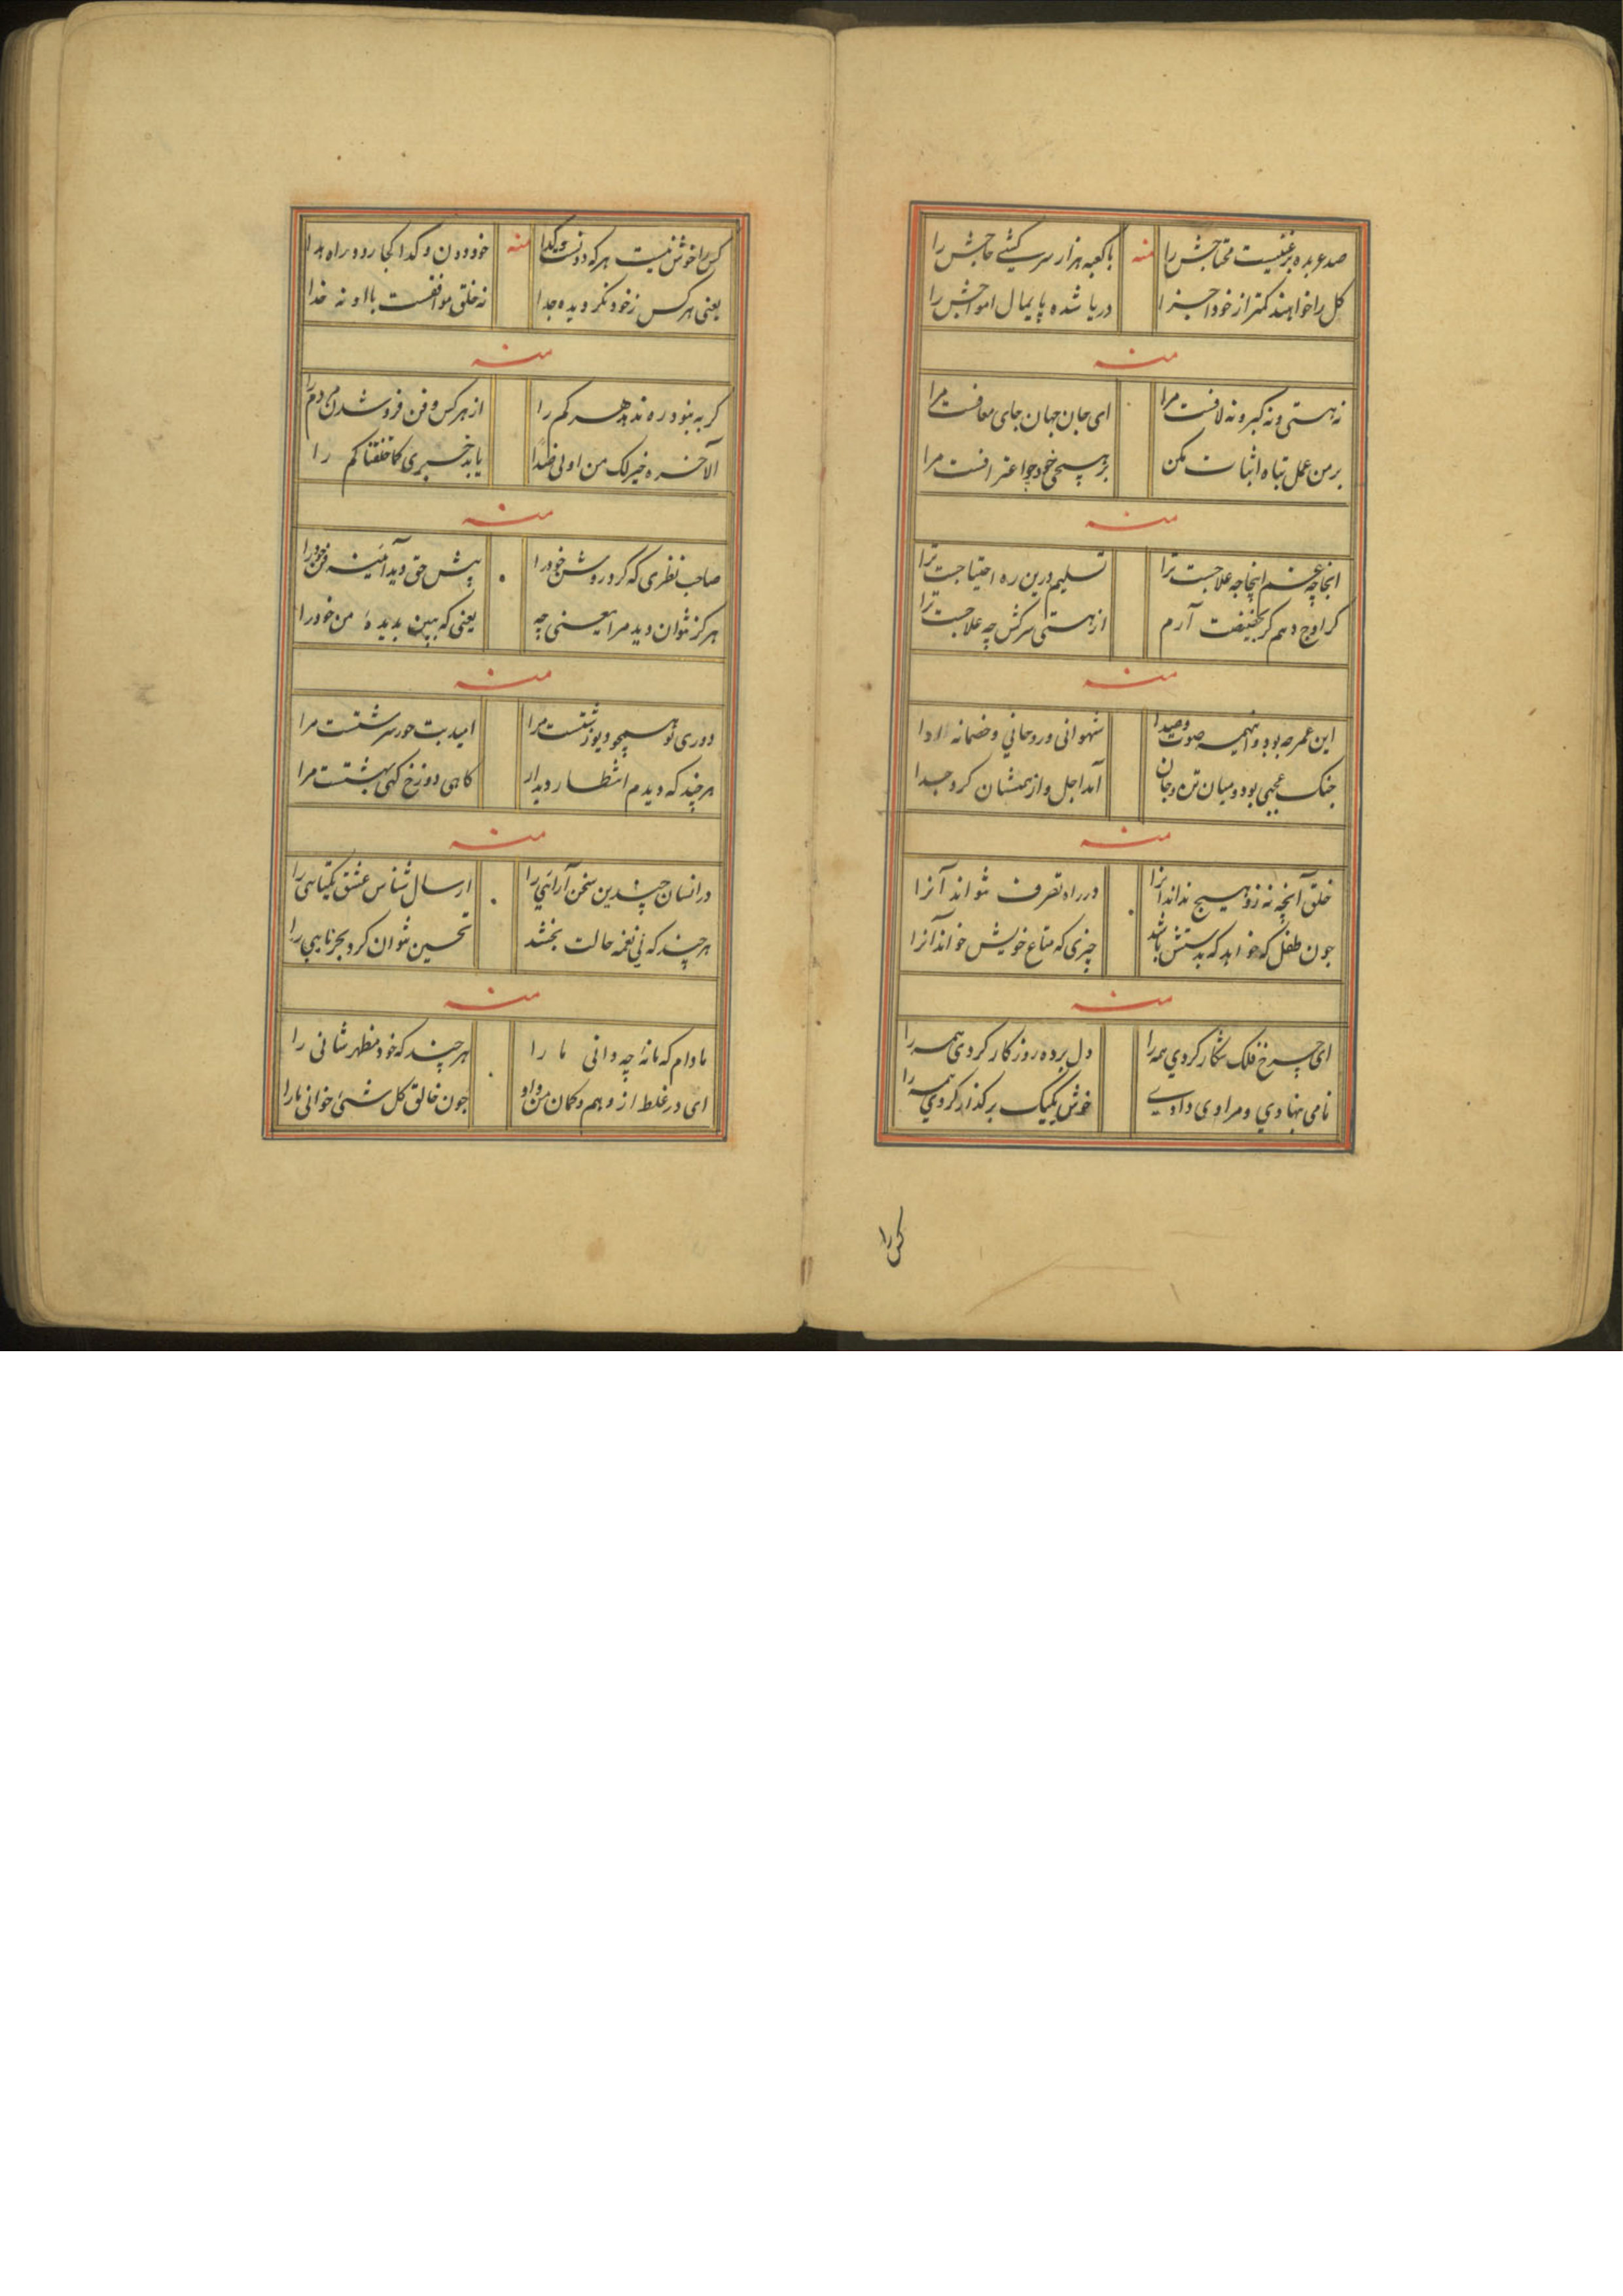 صد عربده بر غنیست محتاجش را منه با کعبه هزار سرکشی حاجش را
کل را خواهند کمتر از خود اجزا دریا شده پایمال امواجش را
منه
نه هستی و نه کبر و نه لافست مرا ای جان جهان جای معافست مرا
بر من عمل تباه اثبات مکن بر هیچی خود چو اعترافست مرا
منه
اینجا چه غم اینجا چه علاجست ترا تسلیم درین ره احتیاجست ترا
کر اوج دهم کر تخفیفت آرم از هستی سرکش چه علاجست ترا
منه
این عمر چه بود و اینهمه صوت و صدا شهوانی و روحانی و خصمانه ادا
جنک عجبی بود میان تن و جان آمد اجل و از همشان کرد جدا
منه
خلق آنچه نه زو هیچ نداند آنرا در راه تصرف نتواند آنرا
چون طفل که خواهد که بدستش باشد چیزی که متاع خویش خواند آنرا
منه
ای چرخ فلک شکار کردی همه را دل برده روزکار کردی همه را
نامی بنهادی و مرادی دادی خوش یکیک برکذار کردی همه را
کس را
کس را خوش نیست هرکه دونست و کدا منه خود دون و کدا کجا رود راه هدا
یعنی هرکس ز خود نکردیده جدا نه خلق موافقست با او نه خدا
منه
کر به نبود ره ندهد هر کم را از هر کس و فن فرو شدن مردم را
الآخره خیر لک من اولی یابد خبری کما خلقناکم را
منه
صاحب نظری که کرد روشن خود را پیش حق دید آئینه فن خود را
هرکز نتوان دید مرا یعنی چه یعنی که ببین بدیده من خود را
منه
دوری تو همچو دیو زشتست مرا امیدت حور سرشتست مرا
هرچند که دیدم انتظار دیدار کاهی دوزخ کهی بهشتست مرا
منه
در انسان چندین سخن آرائی را ارسال شناس عشق یکتایی را
هرچند که نی نغمه حالت بخشد تحسین نتوان کرد بجز نایی را
منه
مادام که مانه چه دانی ما را هرچند که خود مظهر شانی را
ای در غلط از وهم و کمان من و او چون خالق کل شئ خوانی ما را